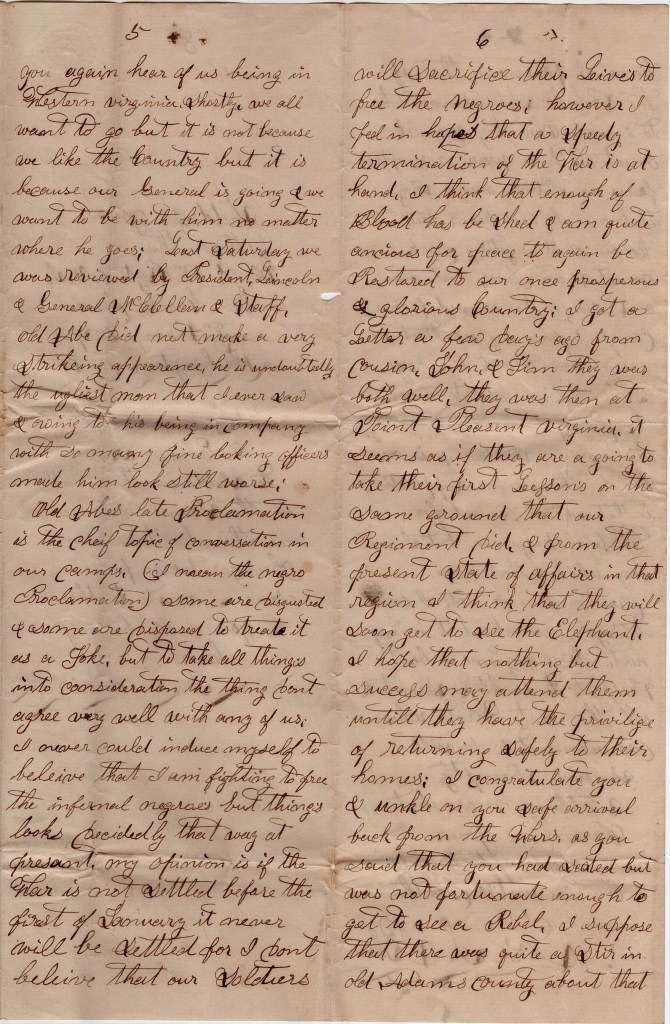 5
you again hear of us being in
Western virginia, Shortly, we all
want to go but it is not because
we like the Country but it is
because our General is going & we
want to be with him no matter
where he goes; Last Saturday we
was reviewed by President, Lincoln
& General McClellan & Staff,
old Abe did not make a very
Strikeing appearence, he is undoubtedly
the ugliest man that I ever saw
& owing to his being in company
with so many fine looking officers
made him look still worse;
Old Abes late Proclamation
is the cheif topic of conversation in
our camps, (I mean the negro
Proclamation) some are disgusted
& some are disposed to treat it
as a Joke, but to take all things
into consideration the thing dont
agree very well with any of us;
I never could induce myself to
beleive that I am fighting to free
the infernal negroes but things
looks decidedly that way at
present, my opinion is if the
War is not Settled before the
first of January it never
will be Settled for I dont
beleive that our Soldiers
6
will Sacrifice their Lives to
free the Negroes; however I
feel in hopes that a Speedy
termination of the War is at
hand, I think that enough of
Blood has be shed & am quite
ancious for peace to again be
Restored to our once prosperous
& glorious Country; I got a
Letter a few day's ago from
cousin, John, & Jim they was
both well, they was then at
Point Pleasent virginia, it
seems as if they are a going to
take their first Lessons on the
same ground that our
Regiment did, & from the
present State of affairs in that
region I think that they will
soon get to see the Elephant.
I hope that nothing but
success may attend them
untill they have the privilige
of returning safely to their
homes; I congratulate you
& unkle on you safe arrivel
back from the Wars, as you
said that you had seated but
was not fortunate enough to
get to see a Rebel, I suppose
that there was quite a Stir in
old Adams county about that